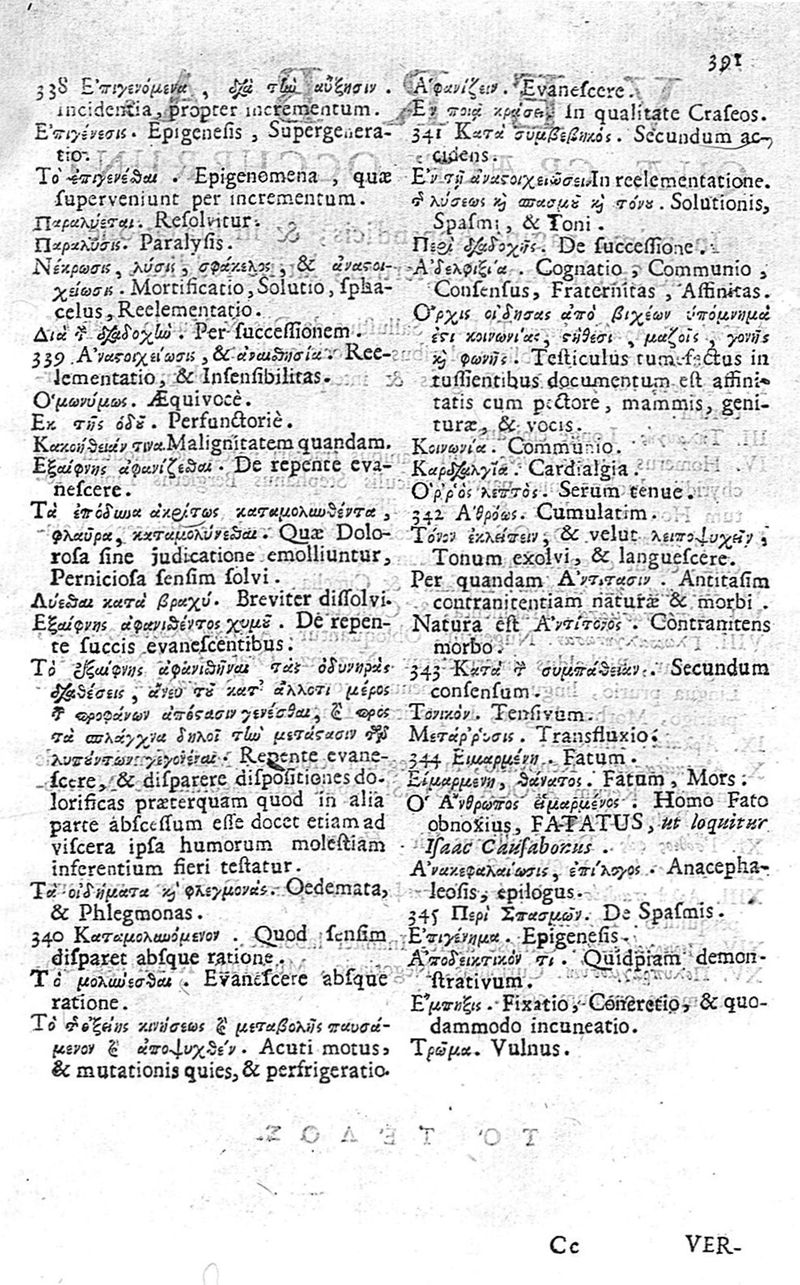 391
338 Ἐπιγενόμενα, διὰ τὴν αὔξησιν.
incidentia, propter incrementum.
Ἐπιγένεσις. Epigenesis, Supergenera-
tio.
Τὸ ἐπιγενέσθαι. Epigenomena, quæ
superveniunt per incrementum.
Παραλύεται. Resolvitur.
Παραλύσις. Paralysis.
Νέκρωσις, λύσις, σφάκελος, & ἀναστοι-
χείωσις. Mortificatio, Solutio, spha-
celus, Reelementatio.
Διὰ τ διαδοχὼ. Per successionem.
339 Ἀναστοιχείωσις, & ἀναισθησία. Ree-
lementatio, & Insensibilitas.
Ὁμωνύμως. Æquivocè.
Ἐκ τῆς ὁδοῦ. Perfunctoriè.
Κακοήθειάν τινα. Malignitatem quandam.
Ἐξαίφνης ἀφανίζεσθαι. De repente eva-
nescere.
Τὰ ἐπόδυνα ἀκρίτως καταμολυνθέντα,
φλαῦρα, καταμολύνεσθαι. Quæ Dolo-
rosa sine judicatione emolliuntur,
Perniciosa sensim solvi.
Λύεσθαι κατὰ βραχύ. Breviter dissolvi.
Ἐξαίφνης ἀφανισθέντος χυμοῦ. De repen-
te succis evanescentibus.
Τὸ ἐξαίφνης ἀφανισθῆναι τὰς ὀδυνηρὰς
διαθέσεις, ἄνευ τοῦ κατ' ἄλλο τι μέρος
τ προφάνων ἀπόστασιν γενέσθαι, καὶ πρὸς
τὰ σπλάγχνα δηλοῖ τὼ μετάστασιν τῶν
λυπούντων γεγονέναι. Repente evane-
scere, & disparere dispositiones do-
lorificas præterquam quod in alia
parte abscessum esse docet etiam ad
viscera ipsa humorum molestiam
inferentium fieri testatur.
Τὰ οἰδήματα καὶ φλεγμονάς. Oedemata,
& Phlegmonas.
340 Καταμολυνόμενον. Quod sensim
disparet absque ratione.
Τὸ μολύεσθαι. Evanescere absque
ratione.
Τὸ τ ὀξείης κινήσεως καὶ μεταβολῆς παυσά-
μενον καὶ ἀποψυχθέν. Acuti motus,
& mutationis quies, & perfrigeratio.
Ἀφανίζειν. Evanescere.
Ἐν ποιᾷ κράσει. In qualitate Craseos.
341 Κατὰ συμβεβηκός. Secundum ac-
cidens.
Ἐν τῇ ἀναστοιχειώσει In reelementatione.
τ λύσεως καὶ σπασμοῦ καὶ τόνου. Solutionis,
Spasmi, & Toni.
Περὶ διαδοχῆς. De successione.
Ἀδελφιξία. Cognatio, Communio,
Consensus, Fraternitas, Affinitas.
Ὄρχις οἰδήσας ἀπὸ βηχέων ὑπόμνημα
ἐστι κοινωνίας, στήθεσι, μαζοῖς, γονῆς
καὶ φωνῆς. Testiculus tumefactus in
tussientibus documentum est affini-
tatis cum pectore, mammis, geni-
turæ, & vocis.
Κοινωνία. Communio.
Καρδιαλγία. Cardialgia.
Ὀῤῥὸς λεπτός. Serum tenue.
342 Ἀθρόως. Cumulatim.
Τόνον ἐκλείπειν, & velut λειποψυχεῖν,
Tonum exolvi, & languescere.
Per quandam Ἀντίτασιν. Antitasim
contranitentiam naturæ & morbi.
Natura est Ἀντίτονος. Contranitens
morbo.
343 Κατὰ τ συμπάθειαν. Secundum
consensum.
Τονικόν. Tensivum.
Μετάῤῥυσις. Transfluxio.
344 Εἱμαρμένη. Fatum.
Εἱμαρμένη, θάνατος. Fatum, Mors.
Ὁ Ἄνθρωπος εἱμαρμένος. Homo Fato
obnoxius, FATATUS, ut loquitur
Isaac Causabonus.
Ἀνακεφαλαίωσις, ἐπίλογος. Anacepha-
leosis, epilogus.
345 Περὶ Σπασμῶν. De Spasmis.
Ἐπιγένημα. Epigenesis.
Ἀποδεικτικόν τι. Quidpiam demon-
strativum.
Ἔμπηξις. Fixatio, Concretio, & quo-
dammodo incuneatio.
Τρῶμα. Vulnus.
Cc
VER-